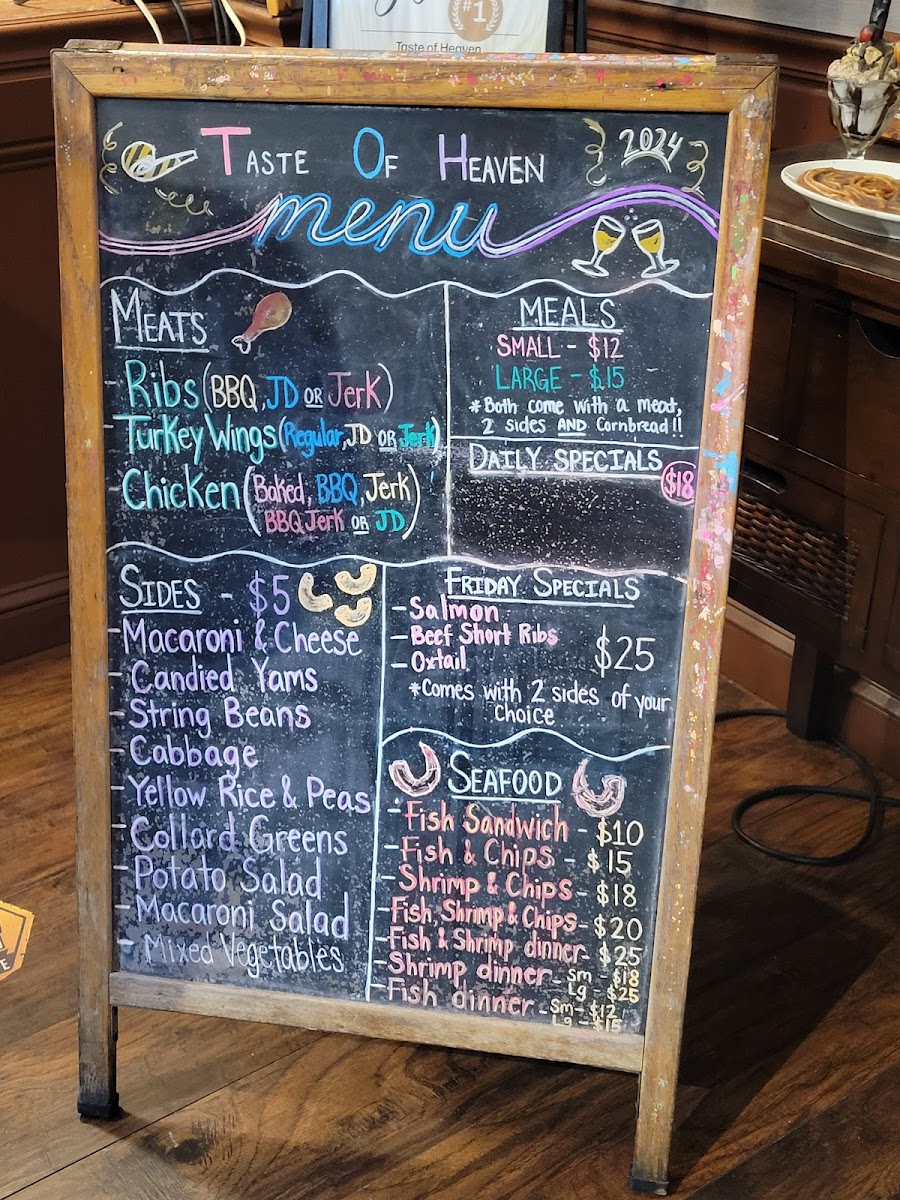 #1
Taste of Heaven
TASTE OF HEAVEN 2024
menu
MEATS
- Ribs (BBQ, JD OR Jerk)
- Turkey Wings (Regular, JD OR Jerk)
- Chicken (Baked, BBQ, Jerk
BBQ Jerk OR JD)
MEALS
SMALL - $12
LARGE - $15
*Both come with a meat,
2 sides AND Cornbread!!
DAILY SPECIALS
$18
SIDES - $5
- Macaroni & Cheese
- Candied Yams
- String Beans
- Cabbage
- Yellow Rice & Peas
- Collard Greens
- Potato Salad
- Macaroni Salad
- Mixed Vegetables
FRIDAY SPECIALS
- Salmon
- Beef Short Ribs
- Oxtail
$25
*Comes with 2 sides of your
choice
SEAFOOD
- Fish Sandwich - $10
- Fish & Chips - $15
- Shrimp & Chips - $18
- Fish, Shrimp & Chips - $20
- Fish & Shrimp dinner - $25
- Shrimp dinner - Sm - $18
Lg - $25
- Fish dinner - Sm - $12
Lg - $15